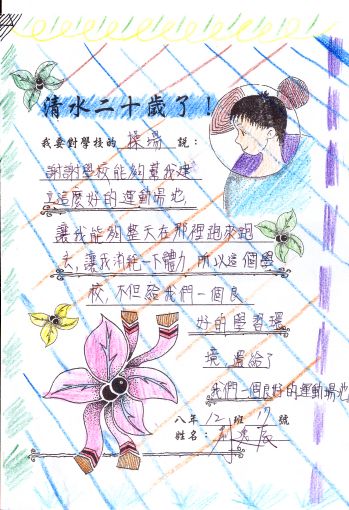 清水二十歲了！
我要對學校的 操場 說：
謝謝學校能夠幫我建
這麼好的運動場地,
讓我能夠整天在那裡跑來跑
去,讓我消耗一下體力,所以這個學
校,不但給我們一個良
好的學習環
境,還給了
我們一個良好的運動場地
八年 12 班 17 號
姓名：